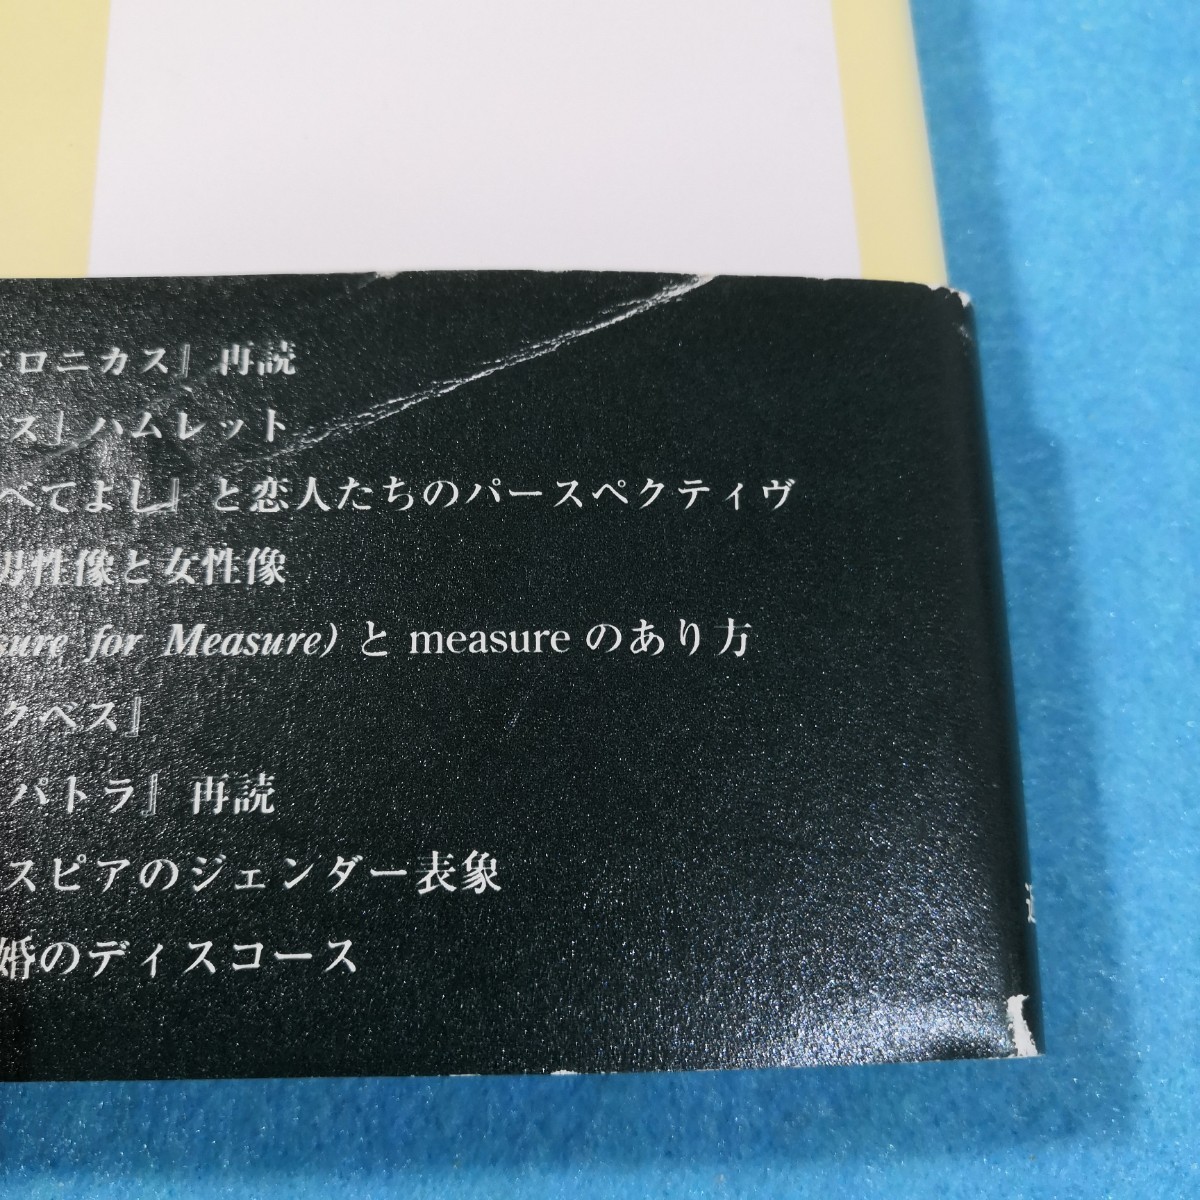 ドロニカス』再読
ス」ハムレット
べてよし』と恋人たちのパースペクティヴ
男性像と女性像
sure for Measure)と measure のあり方
クベス』
パトラ』再読
スピアのジェンダー表象
婚のディスコース